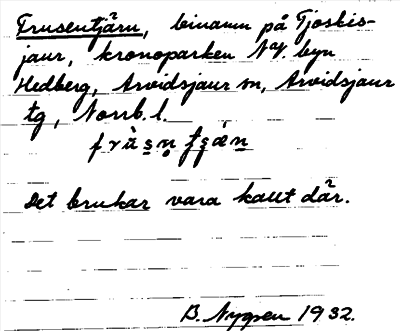 Frusentjärn, binamn på Tjoskis-
jaur, kronoparken Naj. byn
Hedberg, Arvidsjaur sn, Arvidsjaur
tg, Norrb. l.
Det brukar vara kallt där.
B. Nygren 1932.